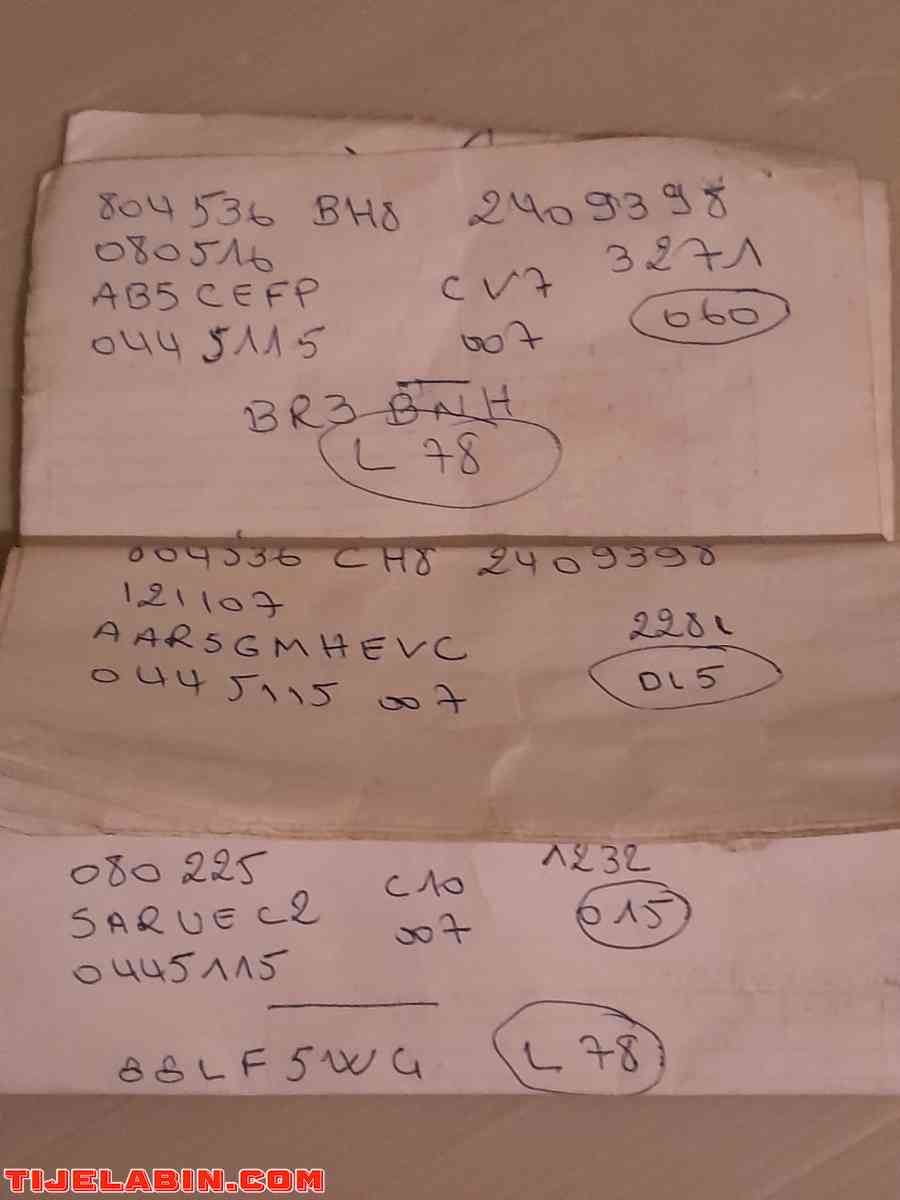 804536 BH8 2409398
080516 3271
AB5CEFP CV7 060
0445115 007
BR3 BNH
L 78
004536 CH8 2409398
121107
AAR5GMHEVC 228L
0445115 007 DL5
080225 C10 1232
SARUEC2 007 015
0445115
88LF5WG L 78
TIJELABIN.COM